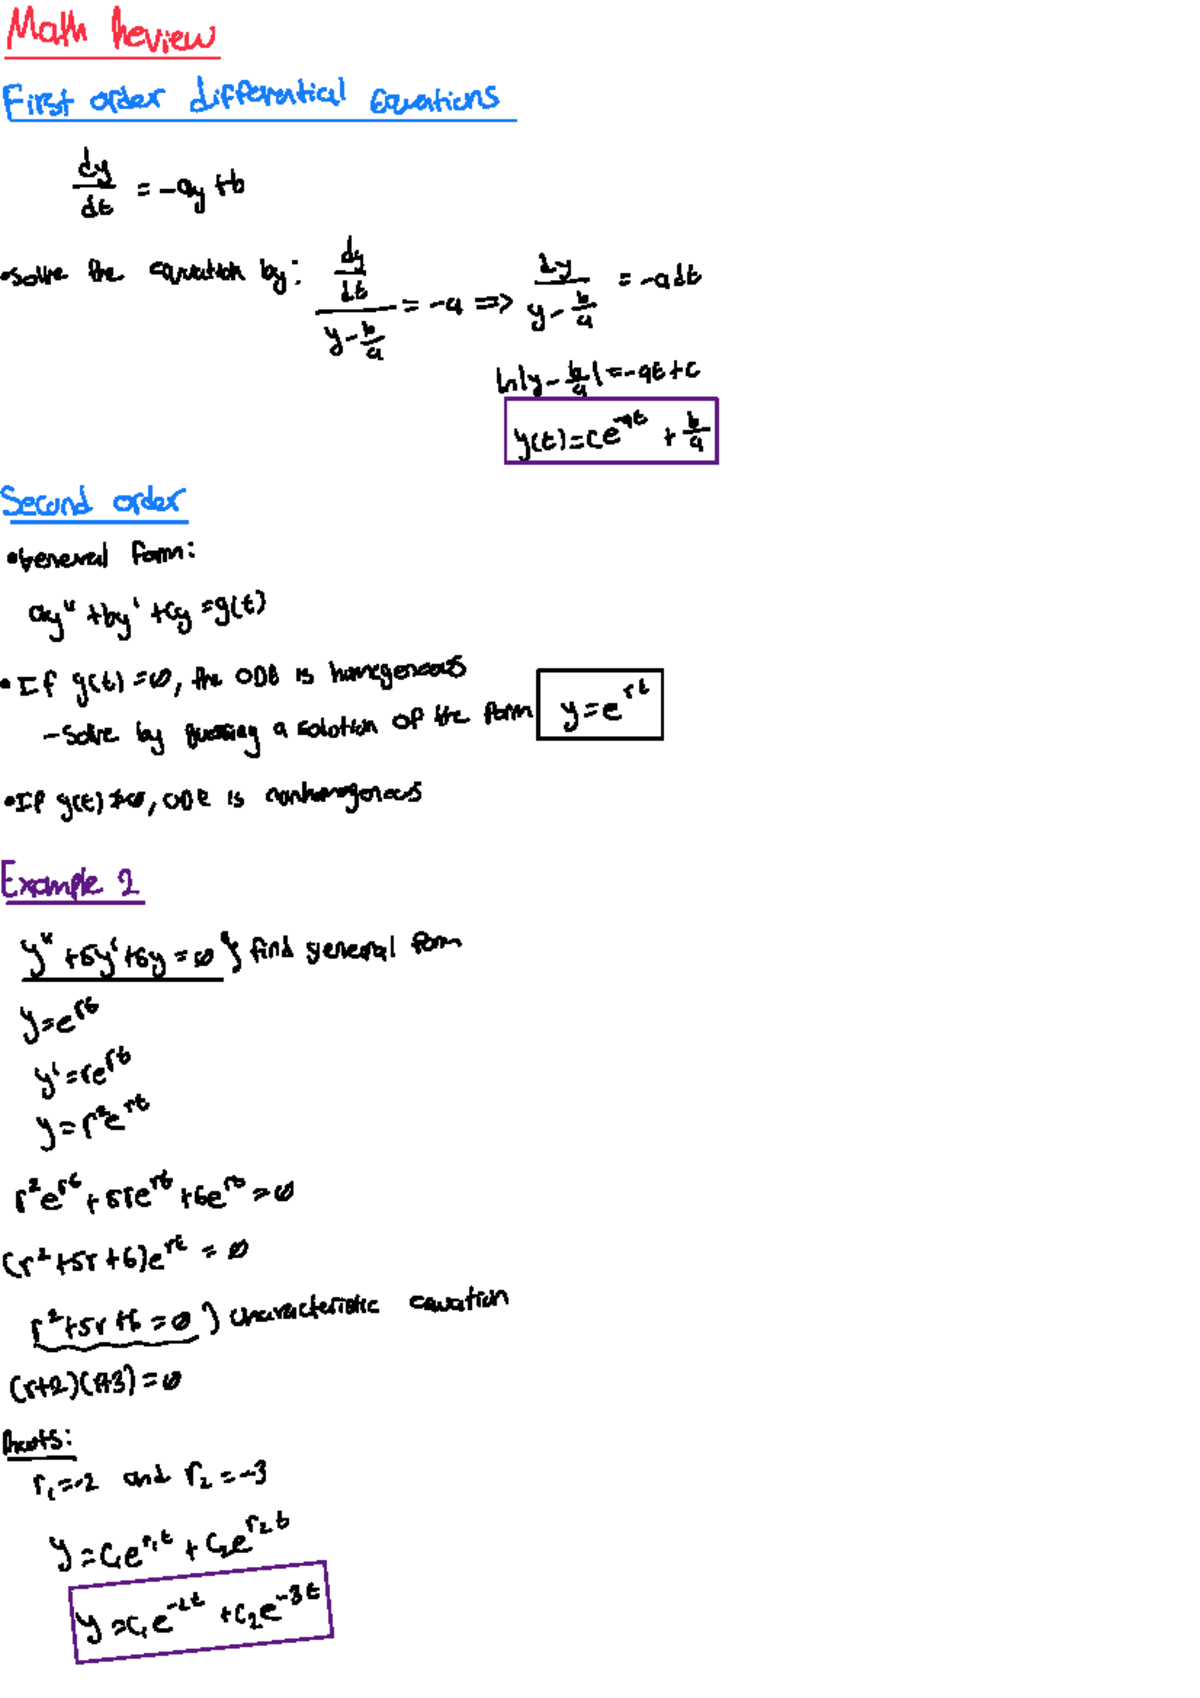 Math Review
First order differential Equations
dy/dt = -ay + b
•Solve the equation by: (dy/dt)/(y - b/a) = -a => dy/(y - b/a) = -adt
ln|y - b/a| = -at + c
y(t) = ce^-at + b/a
Second order
•General form:
ay" + by' + cy = g(t)
•If g(t) = 0, the ODE is homogeneous
-Solve by guessing a solution of the form y = e^rt
•If g(t) ≠ 0, ODE is nonhomogenous
Example 2
y" + 5y' + 6y = 0 } find general form
y = e^rt
y' = re^rt
y = r²e^rt
r²e^rt + 5re^rt + 6e^rt = 0
(r² + 5r + 6)e^rt = 0
r² + 5r + 6 = 0 ) characteristic equation
(r+2)(r+3) = 0
Roots:
r₁ = -2 and r₂ = -3
y = c₁e^r₁t + c₂e^r₂t
y = c₁e^-2t + c₂e^-3t